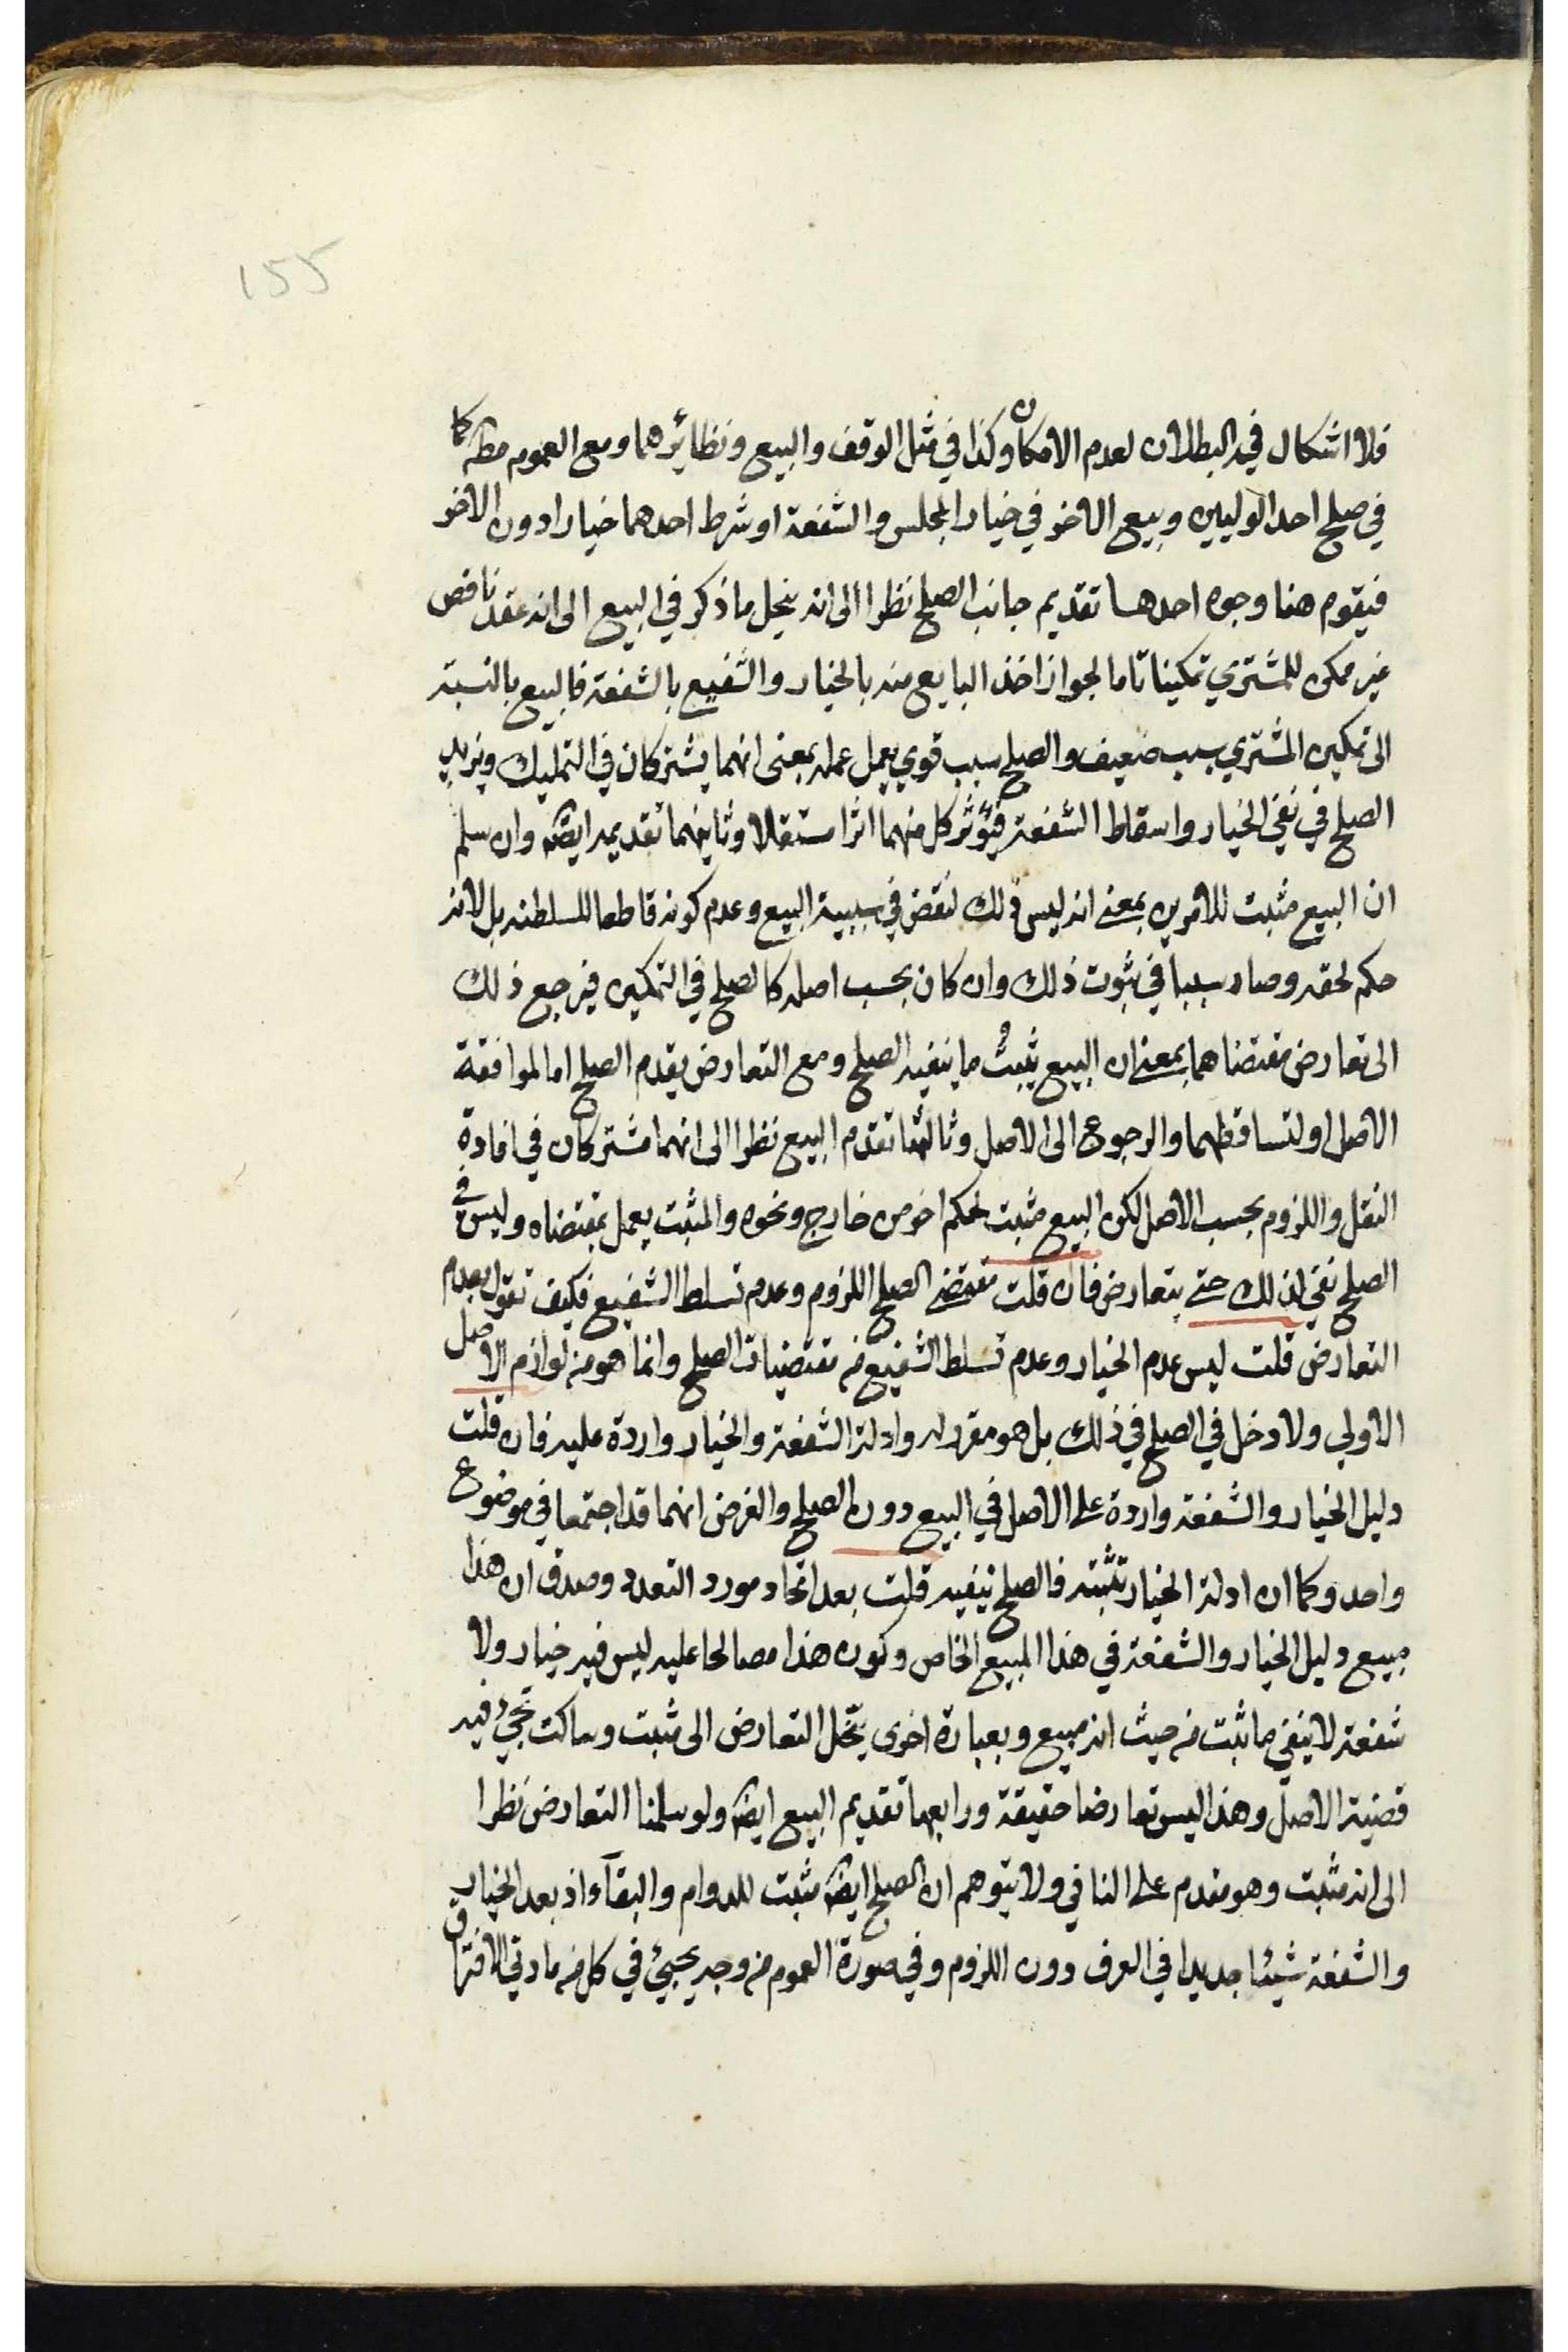 155
فلا اشكال في البطلان لعدم الامكان وكذا في مثل الوقف والبيع ونظائرهما ومع العموم مطلقا كما
في صلح احد الوليين وبيع الاخر في خيار المجلس والشفعة او شرط احدهما خيارا دون الاخر
فيقوم هنا وجوه احدها تقديم جانب الصلح نظرا الى انه ينحل ما ذكر في البيع الى انه عقد ناقص
غير ممكن للمشتري تمكينا تاما لجواز اخذ البايع منه بالخيار والشفيع بالشفعة فالبيع بالنسبة
الى تمكين المشتري سبب ضعيف والصلح سبب قوي يعمل عمله بمعنى انهما يشتركان في التمليك ويزيد
الصلح في نفي الخيار واسقاط الشفعة فيؤثر كل منهما اثرا مستقلا وثانيهما تقديمه ايضا وان سلم
ان البيع مثبت للامرين بمعنى انه ليس ذلك لنقض في سببية البيع وعدم كونه قاطعا للسلطنه بل لانه
حكم لحقه وصار سببا في ثبوت ذلك وان كان بحسب اصله كالصلح في التمكين فيرجع ذلك
الى تعارض مقتضاهما بمعنى ان البيع يثبت ما ينفيه الصلح ومع التعارض يقدم الصلح اما لموافقة
الاصل او لتساقطهما والرجوع الى الاصل وثالثها تقدم البيع نظرا الى انهما مشتركان في افادة
النقل واللزوم بحسب الاصل لكن البيع مثبت لحكم اخر من خارج ونحوه والمثبت يعمل بمقتضاه وليس في
الصلح نفي لذلك حتى يتعارض فان قلت مقتضى الصلح اللزوم وعدم تسلط الشفيع فكيف تقول بعدم
التعارض قلت ليس عدم الخيار وعدم تسلط الشفيع من مقتضيات الصلح وانما هو من لوازم الاصل
الاولي ولا دخل في الصلح في ذلك بل هو مقرر له وادلة الشفعة والخيار واردة عليه فان قلت
دليل الخيار والشفعة واردة على الاصل في البيع دون الصلح والفرض انهما قد اجتمعا في موضوع
واحد وكما ان ادلة الخيار تثبته فالصلح ينفيه قلت بعد اتحاد مورد التعدد وصدق ان هذا
مبيع دليل الخيار والشفعة في هذا المبيع الخاص وكون هذا مصالحا عليه ليس فيه خيار ولا
شفعة لا ينفي ما ثبت من حيث انه مبيع وبعبارة اخرى ينحل التعارض الى مثبت وساكت تجيء فيه
قضية الاصل وهذا ليس تعارضا حقيقة ورابعها تقديم البيع ايضا ولو سلمنا التعارض نظرا
الى انه مثبت وهو مقدم على النافي ولا يتوهم ان الصلح ايضا مثبت للدوام والبقآء اذ يعد الخيار
والشفعة شيئا جديدا في العرف دون اللزوم وفي صورة العموم من وجه يجيئ في كل من مادتي الافتراق